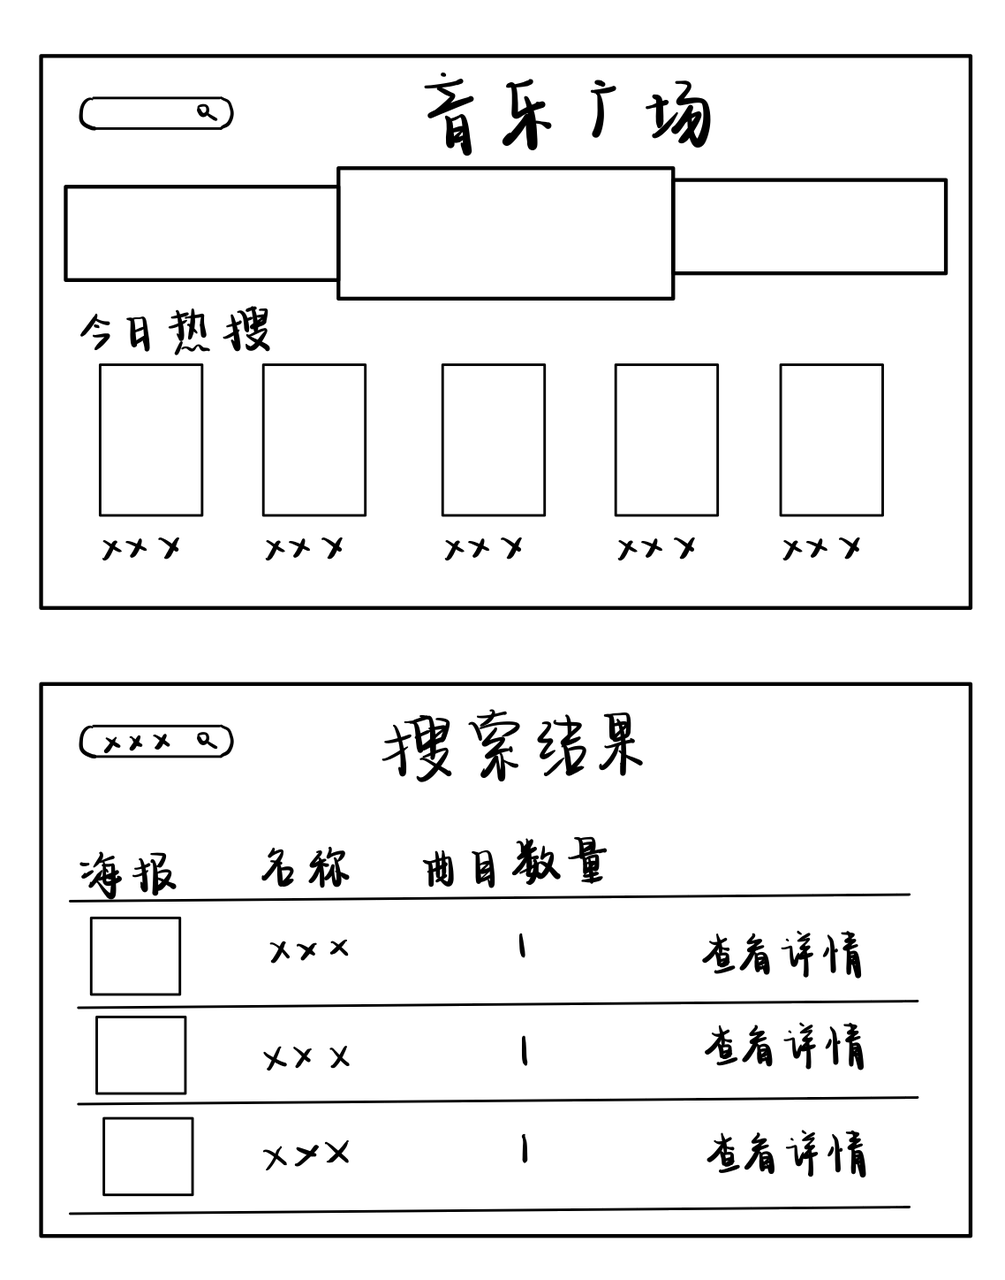 音乐广场
今日热搜
xxx xxx xxx xxx xxx
xxx
搜索结果
海报 名称 曲目数量
xxx 1 查看详情
xxx 1 查看详情
xxx 1 查看详情